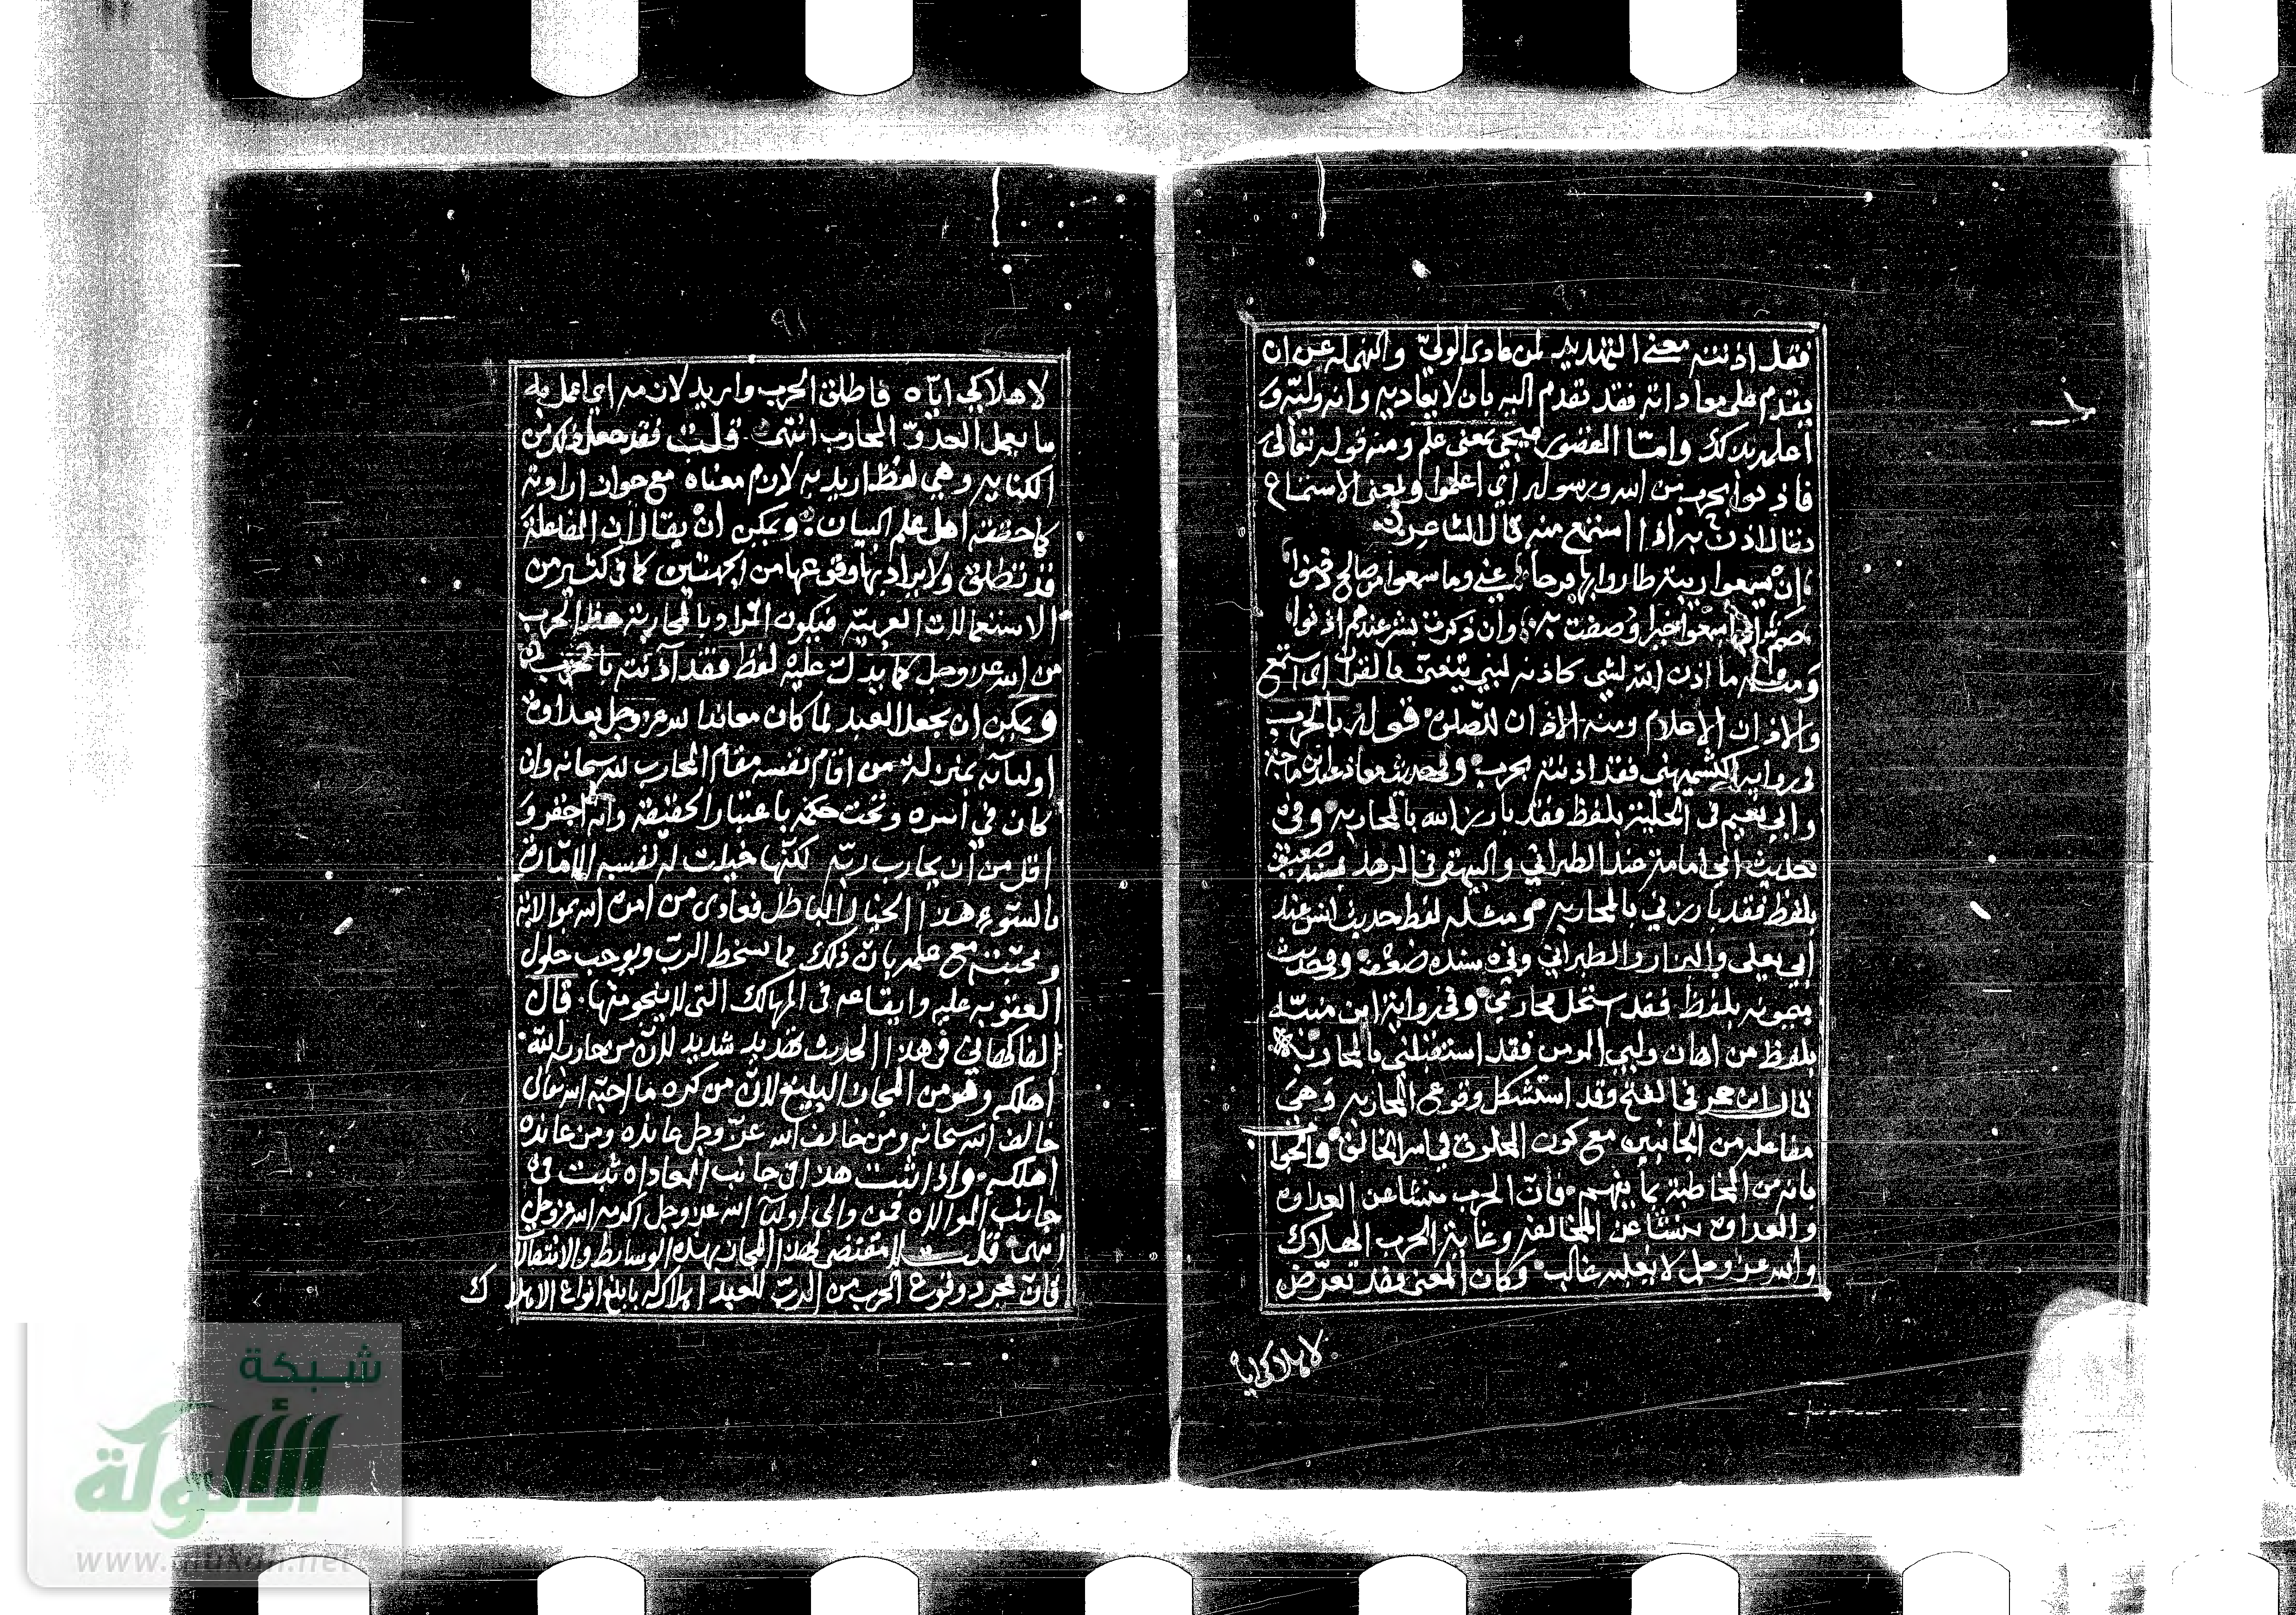 فقد اذنته معنى التهديد لمن عادى الولي والنهي له عن ان
يقدم على معاداته فقد تقدم اليه بان لا يعاديه وانه وليه و
اعلمه بذلك وامّا المقصور فيجي بمعنى علم ومنه قوله تعالى
فاذنوا بحرب من الله ورسوله اي اعلموا وبمعنى الاستماع
يقال اذن به اذا استمع منه قال الشاعر
ان يسمعوا ريبة طاروا بها فرحا عني وما سمعوا من صالح دفنوا
صم اذا سمعوا خيرا وصفت به وان ذكرت بشر عندهم اذنوا
ومنه ما اذن الله لشي كاذنه لنبي يتغنى بالقران اي استمع
والاذان الاعلام ومنه الاذان للصلوة قوله بالحرب
وروايه الكشميهني فقد اذنته بحرب وفي حديث معاذ عند ابن ماجة
وابي نعيم في الحلية بلفظ فقد بارز الله بالمحاربه وفي
حديث ابي امامة عند الطبراني والبيهقي في الزهد بسند ضعيف
بلفظ فقد بارزني بالمحاربه ومثله لفظ حديث انس عند
ابي يعلى والبزار والطبراني وفي سنده ضعف وفي حديث
ميمونه بلفظ فقد استحل محاربتي وفي رواية ابن منبّه
بلفظ من اهان وليي المومن فقد استقبلني بالمحاربة
قال ابن حجر في الفتح وقد استشكل وقوع المحاربه وهي
مفاعله من الجانبين مع كون المخلوق في اسر الخالق والجواب
بانه من المخاطبة بما يفهم فانّ الحرب منشاها عن العداوه
والعداوة منشا عن المخالفه وغاية الحرب الهلاك
والله عز وجل لا يغلبه غالب وكان المعنى فقد تعرّض
لاهلاكي اياه
٩١
لاهلاكي ايّاه فاطلق الحرب واريد لازمه اي اعمل به
ما يعمل العدوّ المحارب انتهى قلت فقد جعل ذلك من
الكنايه وهي لفظ اريد به لازم معناه مع جواز ارادته
كما حققه اهل علم البيان ويمكن ان يقال ان المفاعلة
قد تطلق ولا يراد بها وقوعها من الجهتين كما في كثير من
الاستعمالات العربيّه فيكون المراد بالمحاربة هنا الحرب
من الله عز وجل كما يدلّ عليه لفظ فقد آذنته بالحرب
ويمكن ان يجعل العبد لما كان معاندا لله عز وجل بعداوة
اوليآئه بمنزلة من اقام نفسه مقام المحارب لله سبحانه وان
كان في اسره وتحت حكمه باعتبار الحقيقة وانه احقر و
اقل من ان يحارب ربّه لكنها خيلت له نفسه الامّارة
بالسّوء هذا الخيال الباطل فعادى من امره الله بموالاته
ومحبّته مع علمه بانّ ذلك مما يسخط الربّ ويوجب حلول
العقوبه عليه وايقاعه في المهالك التي لا ينجو منها. قال
الفاكهاني في هذا الحديث تهديد شديد لانّ من حاربه الله
اهلكه وهو من المجاز البليغ لانّ من كره ما احبّه الله تعالى
خالف الله سبحانه ومن خالف الله عزّ وجل عانده ومن عانده
اهلكه واذا ثبت هذا في جانب المعاداه ثبت في
جانب الموالاه فمن والى اوليآ الله عز وجل اكرمه الله عز وجل
انتهى قلت لا مقتضى لهذا المجاز بهذه الوسايط والانتقالات
فانّ مجرد وقوع الحرب من الربّ للعبد اهلاك له بابلغ انواع الاهلاك
شبكة
الألوكة
www.alukah.net